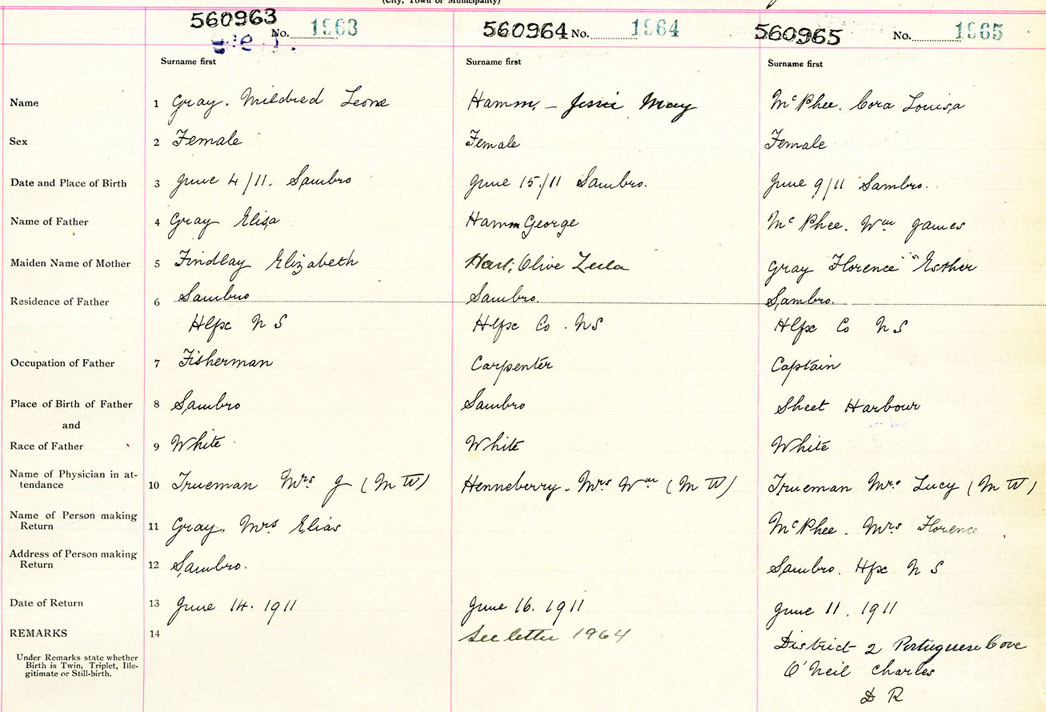 (City, Town or Municipality)
560963 No. 1963 560964 No. 1964 560965 No. 1965
Surname first Surname first Surname first
Name 1 Gray. Mildred Leone Hamm, - Jessie May McPhee. Cora Louisa
Sex 2 Female Female Female
Date and Place of Birth 3 June 4/11. Sambro June 15/11 Sambro. June 9/11 Sambro.
Name of Father 4 Gray Elisa Hamm George McPhee. Wm James
Maiden Name of Mother 5 Findlay Elizabeth Hart, Olive Zula Gray "Florence" Esther
Residence of Father 6 Sambro Sambro. Sambro.
Hlfx N S Hlfx Co. NS Hlfx Co N S
Occupation of Father 7 Fisherman Carpenter Captain
Place of Birth of Father 8 Sambro Sambro Sheet Harbour
and
Race of Father 9 White White White
Name of Physician in at-
tendance 10 Trueman Mrs J (M W) Henneberry. Mrs Wm (M W) Trueman Mrs Lucy (M W)
Name of Person making
Return 11 Gray. Mrs Elias McPhee. Mrs Florence
Address of Person making
Return 12 Sambro. Sambro. Hfx N S
Date of Return 13 June 14. 1911 June 16. 1911 June 11. 1911
REMARKS 14 See letter 1964 District 2 Portuguese Cove
Under Remarks state whether
Birth is Twin, Triplet, Ille-
gitimate or Still-birth.
O'Neil Charles
D R